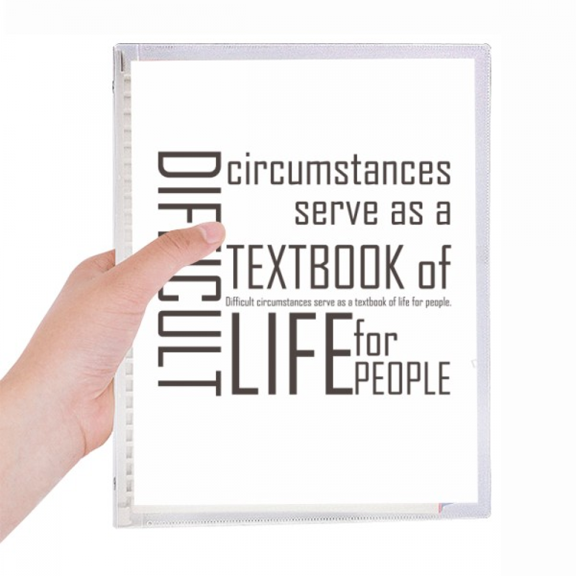 DIFFICULT
circumstances
serve as a
TEXTBOOK of
Difficult circumstances serve as a textbook of life for people.
LIFE for
PEOPLE